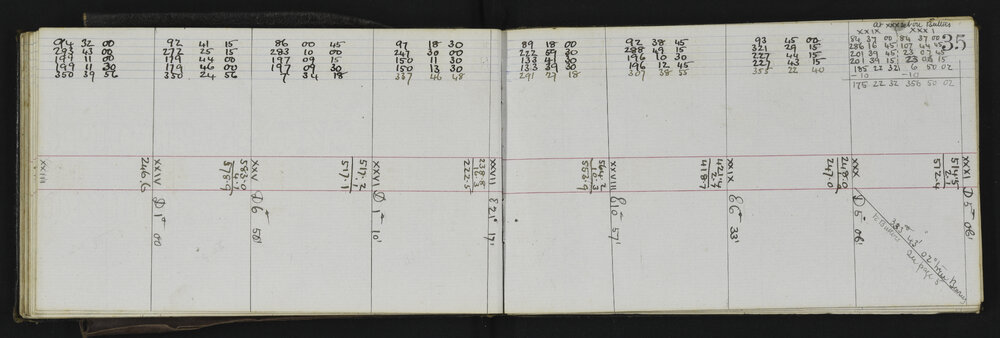 At xxxi above Bullers
XXIX XXXI
35
94 32 00
293 43 00
199 11 00
199 11 30
350 39 56
92 41 15
272 25 15
179 44 00
179 46 00
350 24 56
86 00 45
283 10 00
197 09 15
197 09 30
7 34 18
97 18 30
247 30 00
150 11 30
150 13 30
337 46 48
89 18 00
222 59 30
133 41 30
133 39 30
291 27 18
92 38 45
288 49 15
196 10 30
196 12 45
307 38 55
93 45 00
321 29 15
227 44 15
227 43 15
355 22 40
84 37 00 84 37 00
286 16 45 107 44 45
201 39 45 23 07 45
201 39 15 23 08 15
185 22 32 6 50 02
-10 -10
175 22 32 356 50 02
XXIII
246.6
XXIV D 1° 00
583.0
4.1
578.9
XXV D 6° 50'
517.2
.1
517.1
XXVI D 1° 10'
238.8
16.3
222.5
XXVII E 21° 17'
564.2
10.3
553.9
XXVIII E 10° 57'
421.4
2.7
418.7
XXIX E 6° 33'
248.0
1.0
247.0
XXX D 5° 06'
514.5
2.1
512.4
XXXI D 5° 06'
383° 43' 02" True Bearing
to Bullers
See page 5